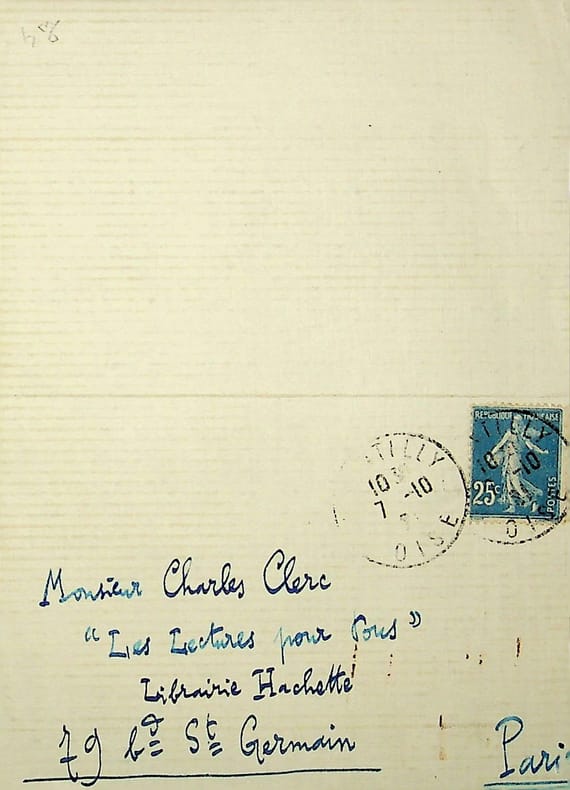 48
REPUBLIQUE FRANÇAISE
25c
POSTES
10 30
7 -10
OISE
Monsieur Charles Clerc
"Les Lectures pour Tous"
Librairie Hachette
79 bd St Germain
Paris